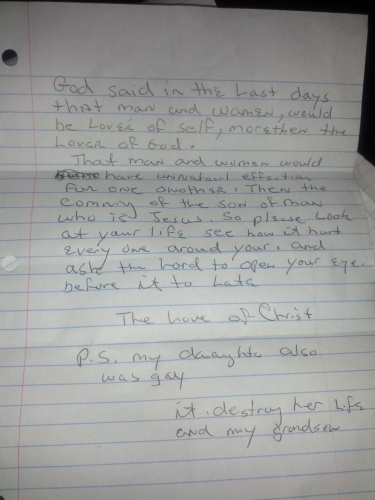 God said in the Last days
that man and women, would
be Lover of self, more then the
Lover of God.
That man and women would
have unnaturl effection
for one another. Then the
comming of the son of man
who is Jesus. So please Look
at your life see how it hurt
every one around your. and
ask the Lord to open your eye.
before it to Late
The Love of Christ
P.S. my daughter also
was gay
it. destroy her Life
and my grandson